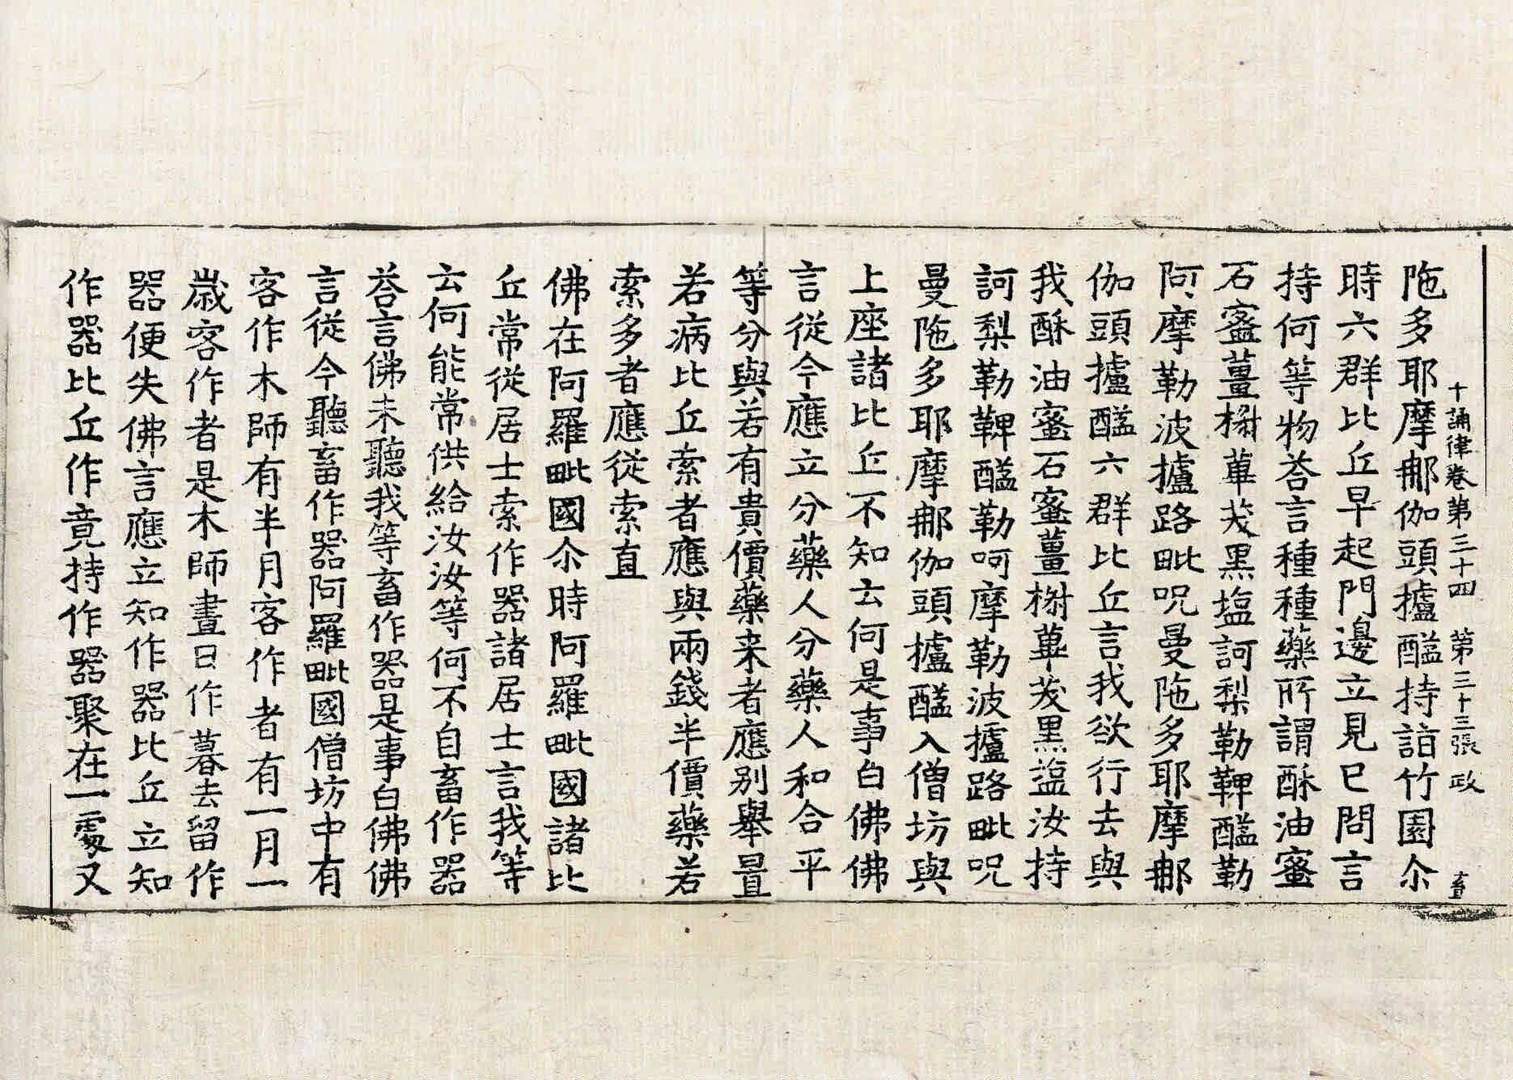 十誦律卷第三十四　第三十三張　政
陁多耶摩𨚗伽頭攎醯持詣竹園尒
時六群比丘早起門邊立見已問言
持何等物荅言種種藥所謂酥油蜜
石蜜薑椒蓽茇黑塩訶梨勒鞞醯勒
阿摩勒波攎路毗呪曼陁多耶摩𨚗
伽頭攎醯六群比丘言我欲行去與
我酥油蜜石蜜薑椒蓽茇黒塩汝持
訶梨勒鞞醯勒呵摩勒波攎路毗呪
曼陁多耶摩𨚗伽頭攎醯入僧坊與
上座諸比丘不知云何是事白佛佛
言從今應立分藥人分藥人和合平
等分與若有貴價藥来者應別舉置
若病比丘索者應與兩錢半價藥若
索多者應從索直
佛在阿羅毗國尒時阿羅毗國諸比
丘常從居士索作器諸居士言我等
云何能常供給汝汝等何不自畜作器
荅言佛未聽我等畜作器是事白佛佛
言從今聽畜作器阿羅毗國僧坊中有
客作木師有半月客作者有一月一
歲客作者是木師晝日作暮去留作
器便失佛言應立知作器比丘立知
作器比丘作竟持作器聚在一處又